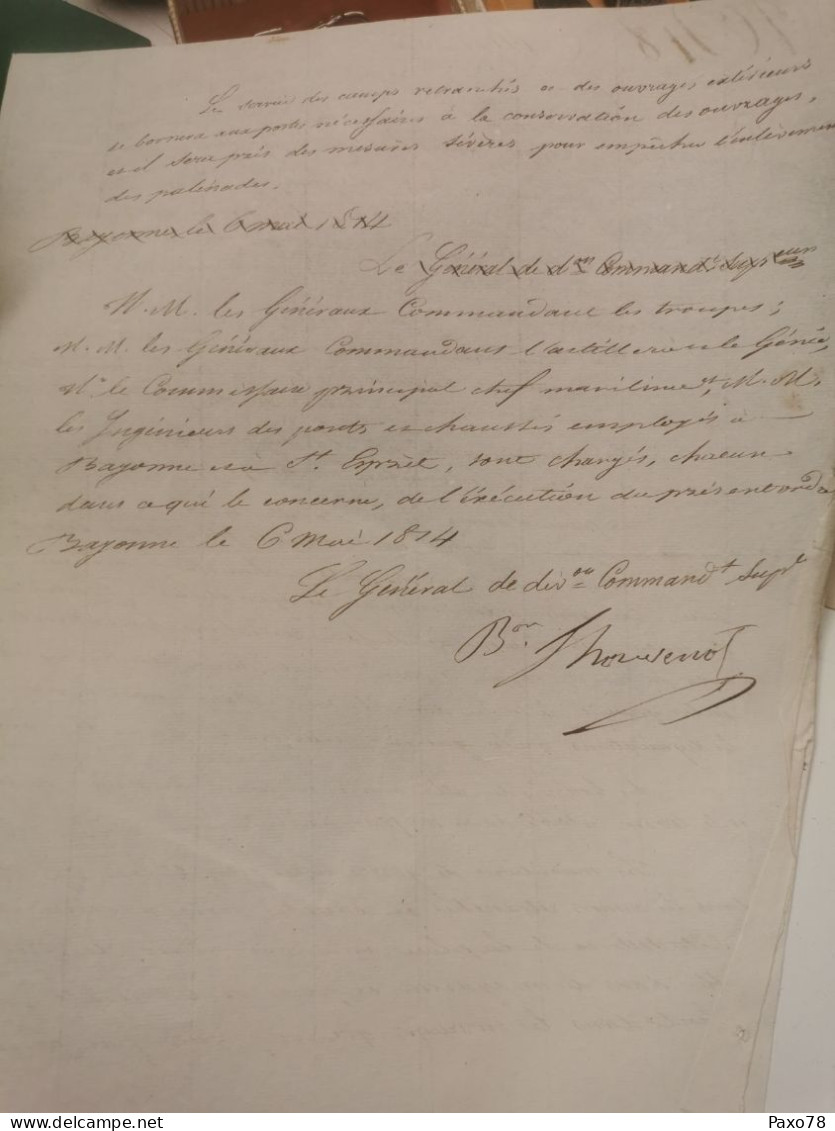 Le service des camps retranchés et des ouvrages extérieurs
se bornera aux postes nécessaires à la conservation des ouvrages,
et il sera pris des mesures sévères pour empêcher l'enlèvement
des palissades.
Bayonne le 6 mai 1814
Le Général de don Commandt Supérieur
M.M. les Généraux Commandant les troupes;
M.M. les Généraux Commandant l'artillerie et le Génie,
Mr le Commissaire principal chef maritime et, M.M.
les Ingénieurs des ponts et chaussés employés à
Bayonne et à St. Esprit, sont chargés, chacun
dans ce qui le concerne, de l'éxécution du présent ordre
Bayonne le 6 Mai 1814
Le Général de divon Commandt Supr
Bon Thouvenot
www.delcampe.net
Paxo78